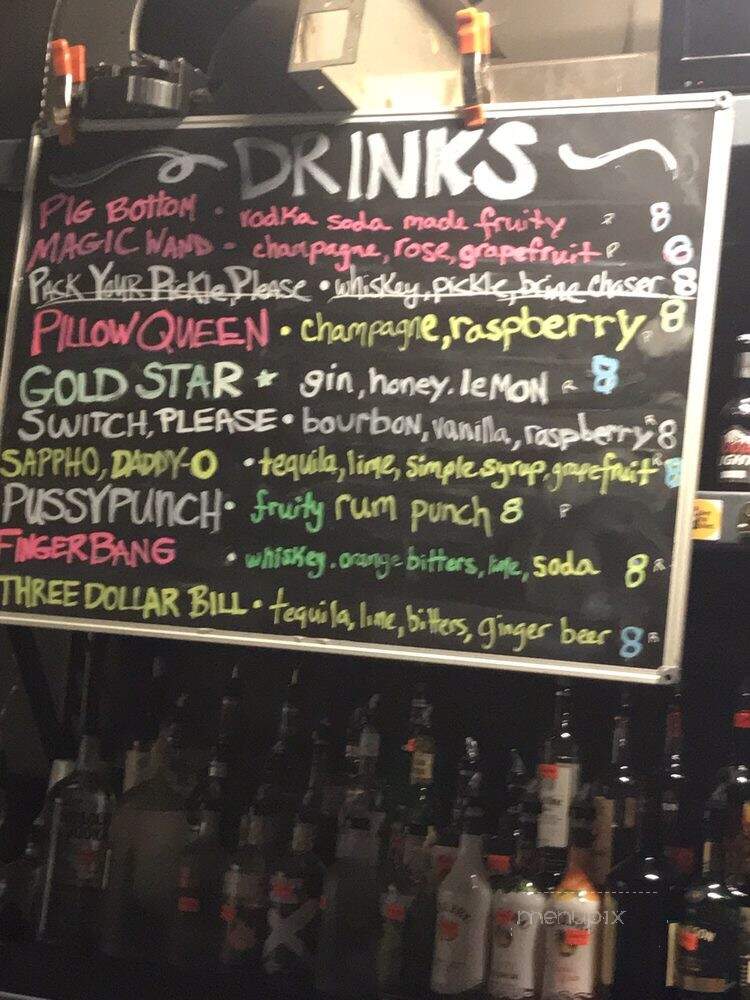 DRINKS
PIG BOTTOM - vodka soda made fruity R 8
MAGIC WAND - champagne, rose, grapefruit R 8
PACK YOUR PICKLE, PLEASE • whiskey, pickle, brine chaser 8
PILLOW QUEEN • champagne, raspberry R 8
GOLD STAR ★ gin, honey, leMON R 8
SWITCH, PLEASE • bourbon, vanilla, raspberry R 8
SAPPHO, DADDY-O • tequila, lime, simple syrup, grapefruit R 8
PUSSY PUNCH • fruity rum punch 8 R
FINGER BANG • whiskey, orange bitters, lime, soda 8 R
THREE DOLLAR BILL • tequila, lime, bitters, ginger beer 8 R
menupix